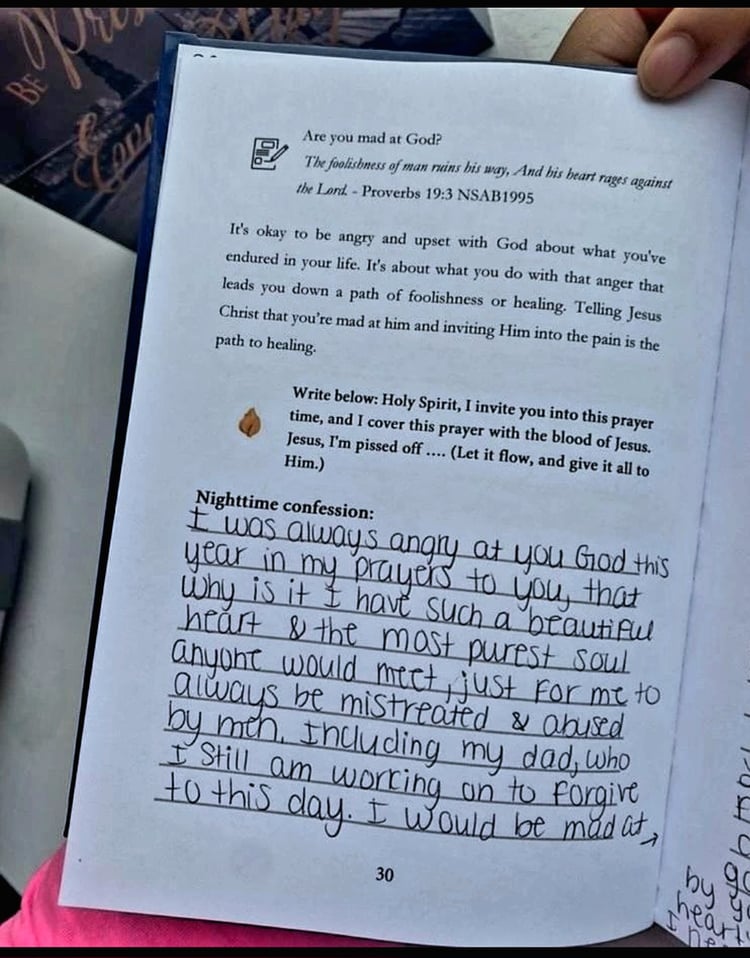 BE
Are you mad at God?
The foolishness of man ruins his way, And his heart rages against
the Lord. - Proverbs 19:3 NSAB1995
It's okay to be angry and upset with God about what you've
endured in your life. It's about what you do with that anger that
leads you down a path of foolishness or healing. Telling Jesus
Christ that you're mad at him and inviting Him into the pain is the
path to healing.
Write below: Holy Spirit, I invite you into this prayer
time, and I cover this prayer with the blood of Jesus.
Jesus, I'm pissed off .... (Let it flow, and give it all to
Him.)
Nighttime confession:
I was always angry at you God this
year in my prayers to you, that
why is it I have such a beautiful
heart & the most purest soul
anyone would meet, just for me to
always be mistreated & abused
by men. Including my dad, who
I still am working on to forgive
to this day. I would be mad at →
30
by
heart
I